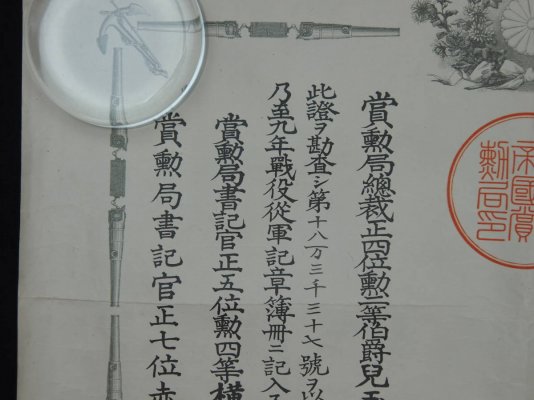 賞勳局總裁正四位勳二等伯爵兒玉
此證ヲ勘査シ第十八万三千三十七號ヲ以
乃至九年戰役從軍記章簿冊ニ記入ス
賞勳局書記官正五位勳四等横
賞勳局書記官正七位赤
國賞
勳局印